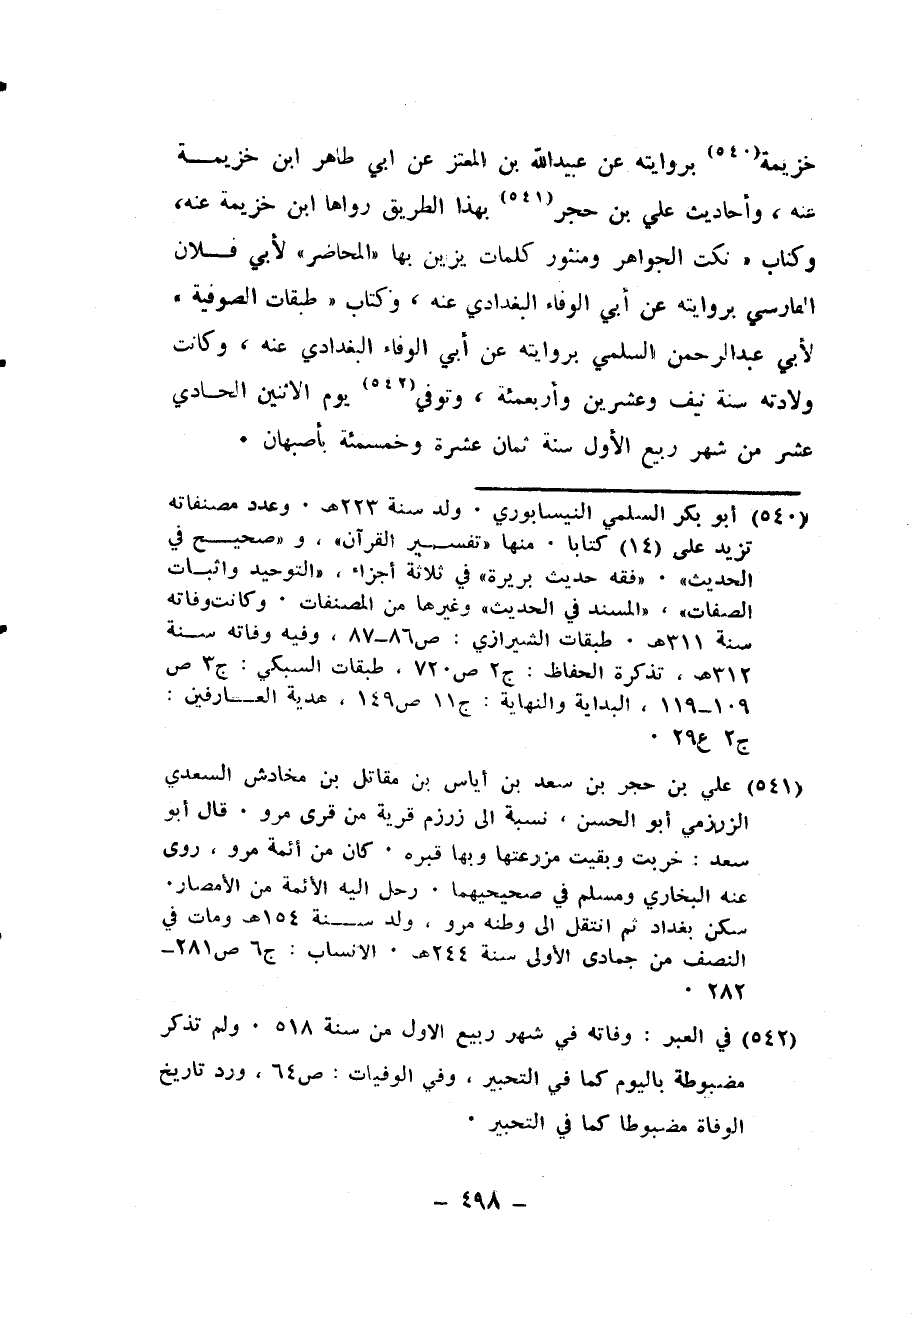 خزيمة(٥٤٠) بروايته عن عبيدالله بن المعتز عن ابي طاهر ابن خزيمــة
عنه ، وأحاديث علي بن حجر(٥٤١) بهذا الطريق رواها ابن خزيمة عنه،
وكتاب « نكت الجواهر ومنثور كلمات يزين بها «المحاضر» لأبي فــلان
الفارسي بروايته عن أبي الوفاء البغدادي عنه ، وكتاب « طبقات الصوفية »
لأبي عبدالرحمن السلمي بروايته عن أبي الوفاء البغدادي عنه ، وكانت
ولادته سنة نيف وعشرين وأربعمئة ، وتوفي(٥٤٢) يوم الاثنين الحـادي
عشر من شهر ربيع الأول سنة ثمان عشرة وخمسمئة بأصبهان ٠
(٥٤٠) أبو بكر السلمي النيسابوري ٠ ولد سنة ٢٢٣هـ ٠ وعدد مصنفاته
تزيد على (١٤) كتابا ٠ منها «تفســير القرآن» ، و «صحيــح في
الحديث» ٠ «فقه حديث بريرة» في ثلاثة أجزاء ، «التوحيد واثبـات
الصفات» ، «المسند في الحديث» وغيرها من المصنفات ٠ وكانت وفاته
سنة ٣١١هـ ٠ طبقات الشيرازي : ص٨٦ـ٨٧ ، وفيه وفاته ســنة
٣١٢هـ ، تذكرة الحفاظ : ج٢ ص٧٢٠ ، طبقات السبكي : ج٣ ص
١٠٩ـ١١٩ ، البداية والنهاية : ج١١ ص١٤٩ ، هدية العــارفين :
ج٢ ع٢٩ ٠
(٥٤١) علي بن حجر بن سعد بن أياس بن مقاتل بن مخادش السعدي
الزرزمي أبو الحسن ، نسبة الى زرزم قرية من قرى مرو ٠ قال أبو
سعد : خربت وبقيت مزرعتها وبها قبره ٠ كان من أئمة مرو ، روى
عنه البخاري ومسلم في صحيحيهما ٠ رحل اليه الأئمة من الأمصار٠
سكن بغداد ثم انتقل الى وطنه مرو ، ولد ســنة ١٥٤هـ ومات في
النصف من جمادى الأولى سنة ٢٤٤هـ ٠ الانساب : ج٦ ص٢٨١ـ
٢٨٢ ٠
(٥٤٢) في العبر : وفاته في شهر ربيع الاول من سنة ٥١٨ ٠ ولم تذكر
مضبوطة باليوم كما في التحبير ، وفي الوفيات : ص٦٤ ، ورد تاريخ
الوفاة مضبوطا كما في التحبير ٠
ـ ٤٩٨ ـ